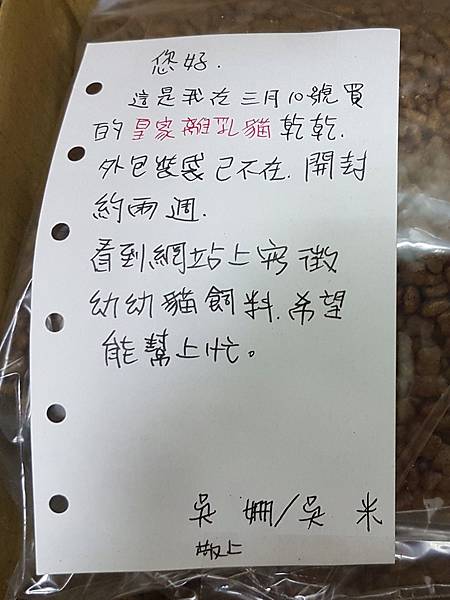 您好.
這是我在三月10號買
的皇家離乳貓乾乾.
外包裝袋已不在.開封
約兩週.
看到網站上有徵
幼幼貓飼料.希望
能幫上忙。
吳 姍/吳 米
敬上